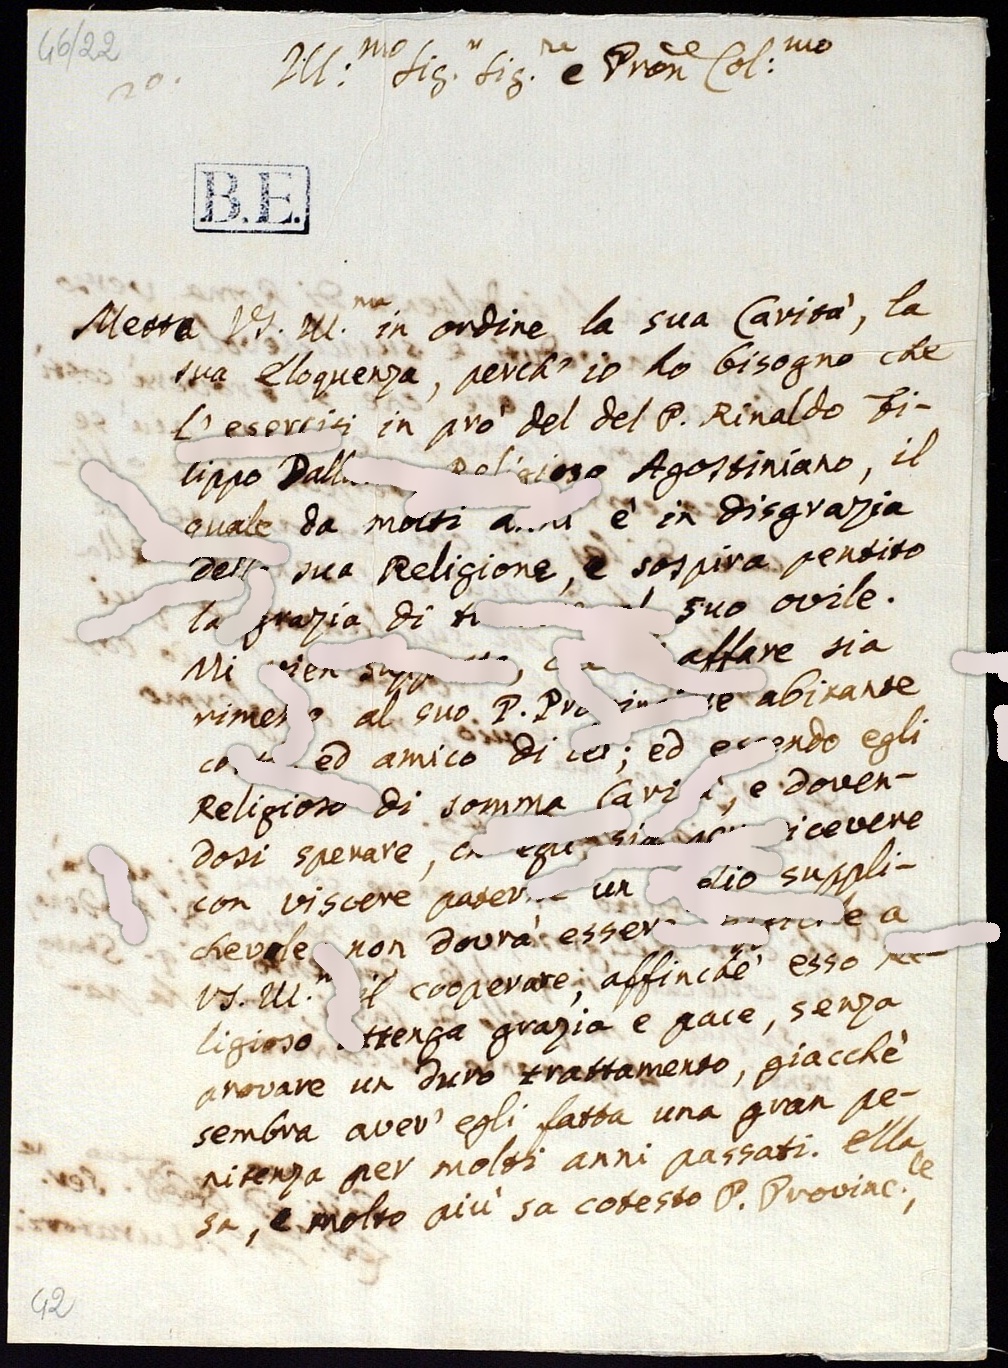 46/22
20.
Ill:mo Sig.r Sig.re e Pron Col:mo
B.E.
Metta VS. Ill.ma in ordine la sua Carità, la
sua eloquenza, perch' io ho bisogno che
l' eserciti in prò del del P. Rinaldo Fi-
lippo Religioso Agostiniano, il
quale da molti anni è in disgrazia
della sua Religione, e sospira pentito
la grazia di suo ovile.
Mi vien affare sia
rimesso al suo P. abitante
ed amico di lei; ed essendo egli
Religioso di somma Carità, e doven-
dosi sperare, ricevere
con viscere un suppli-
chevole, non dovrà essere a
VS. Ill.ma il cooperare, affinché esso Re-
ligioso ottenga grazia e pace, senza
provare un duro trattamento, giacchè
sembra aver' egli fatta una gran pe-
nitenza per molti anni passati. Ella
sa, e molto più sa cotesto P. Provinc.le,
42